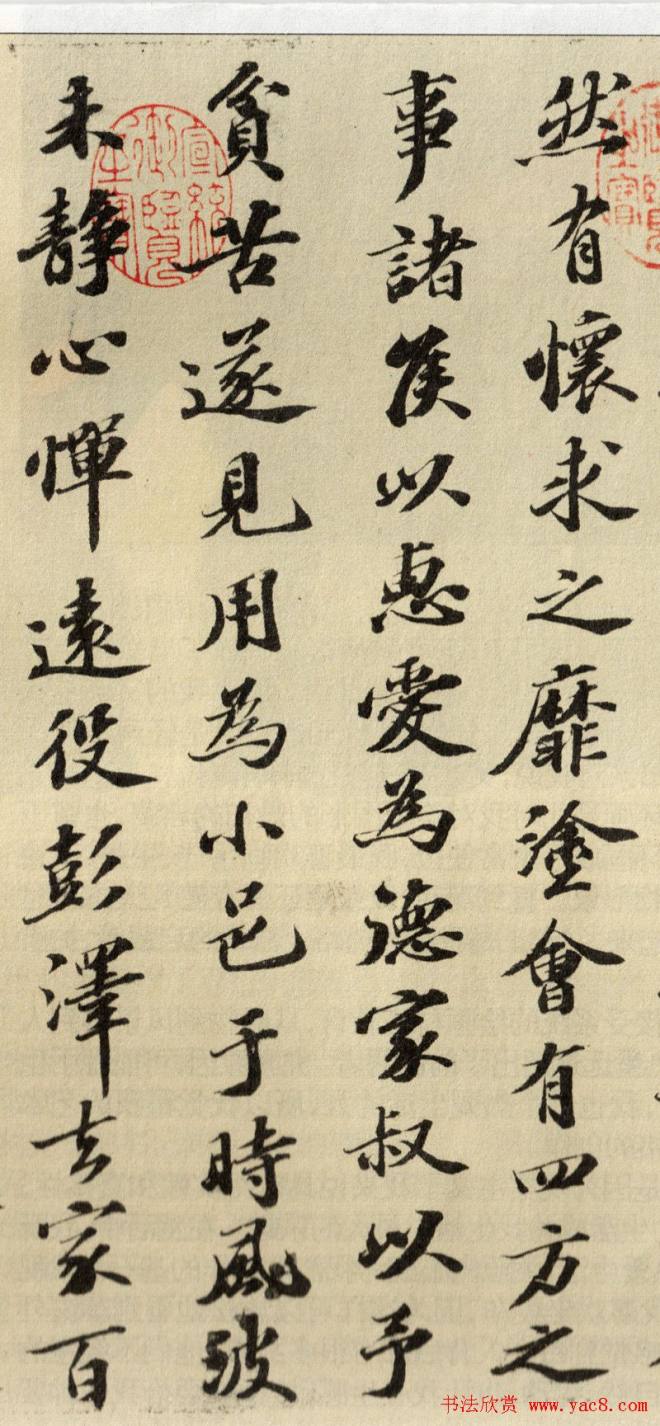 然有懷求之靡塗會有四方之
事諸侯以惠愛為德家叔以予
貧苦遂見用為小邑于時風波
未靜心憚遠役彭澤去家百
宣統御覽之寶
书法欣赏 www.yac8.com